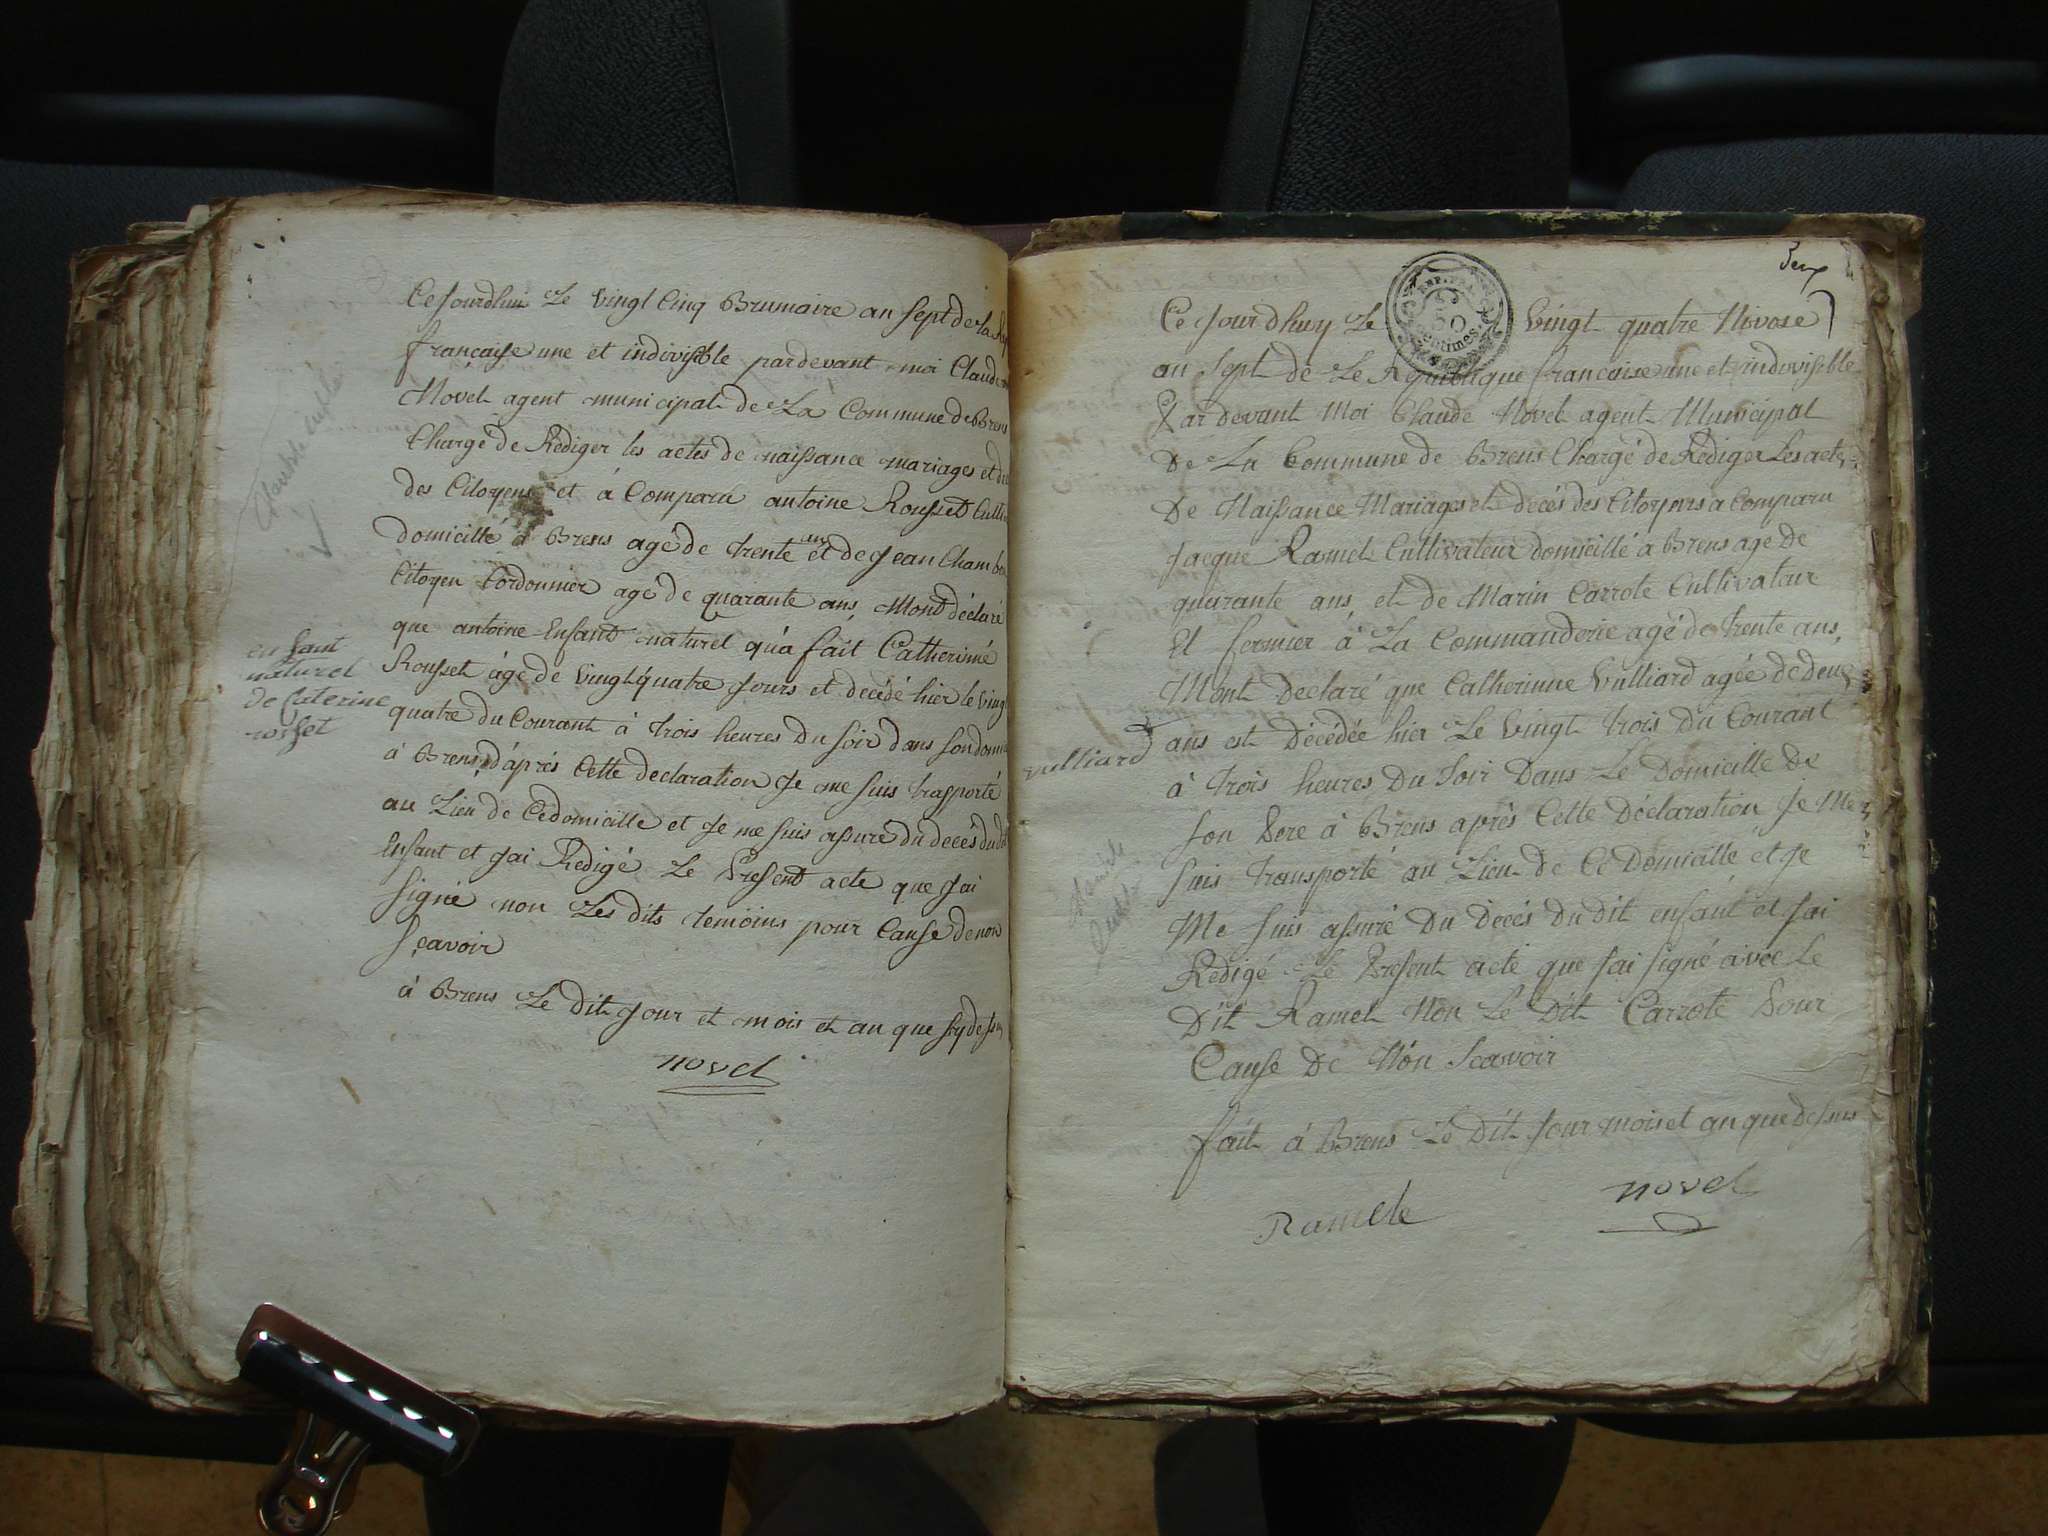 Ce jourdhui Le vingt Cinq Brumaire an sept de La
française une et indivisible pardevant moi Claude
Novel agent municipal de La Commune de Brens
Chargé de Rédiger les actes de naissance mariages et
des Citoyens et à Comparu antoine Rousset
domicillé à Brens agé de trente ans et de Jean
Citoyen Cordonnier agé de quarante ans Mont déclaré
que antoine Enfant naturel qu'a fait Catherine
Rousset âgé de vingt quatre Jours et décédé hier le vingt
quatre du Courant à trois heures du soir dans son
à Brens, d'après Cette declaration Je me suis trasporté
au Lieu de Ce domicille et Je me suis assuré du decés du
Enfant et Jai Redigé Le Present acte que Jai
signé non Les dits temoins pour Cause de non
sçavoir
à Brens Le dit Jour et mois et an que
novel
enfant
naturel
de Caterine
rosset
deux
REP. FRA.
50
centimes
Ce Jourdhuy Le vingt quatre Nivose
an Sept de Le Republique française une et indivisible
Par devant Moi Claude Novel agent Municipal
De La Commune de Brens Chargé de Rédiger Les actes
De Naissance Mariages et decés des Citoyens a Comparu
Jacque Ramel Cultivateur domicillé a Brens agé de
quarante ans et de Marin Carrote Cultivateur
Et fermier à La Commanderie agé de trente ans,
Mont Declaré que Catherinne Vulliard agée de deux
ans est Décédée hier Le vingt trois du Courant
à trois heures Du Soir Dans Le Domicille de
son Pere à Brens après Cette Déclaration Je Me
suis transporté au Lieu de Ce Domicille et Je
Me suis assuré Du Decés Du Dit enfant et Jai
Redigé Le Present acte que Jai signé avec Le
Dit Ramel Non Le Dit Carrote Pour
Cause De Non Scavoir
fait à Brens Le Dit Jour mois et an que dessus
Ramele
novel
vulliard